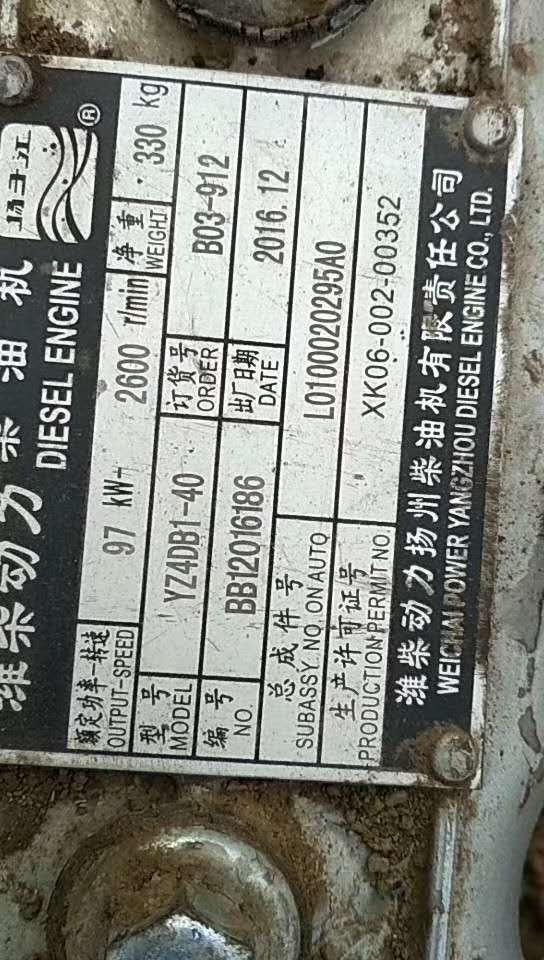 扬子江 ®
潍柴动力 柴油机
DIESEL ENGINE
额定功率—转速 97 kW— 2600 r/min 净重 330 kg
OUTPUT-SPEED WEIGHT
型号 YZ4DB1-40 订货号 B03-912
MODEL ORDER
编号 BB12016186 出厂日期 2016.12
NO. DATE
总成件号 L0100020295A0
SUBASSY.NO.ONAUTO
生产许可证号 XK06-002-00352
PRODUCTION PERMIT NO.
潍柴动力扬州柴油机有限责任公司
WEICHAI POWER YANGZHOU DIESEL ENGINE CO., LTD.